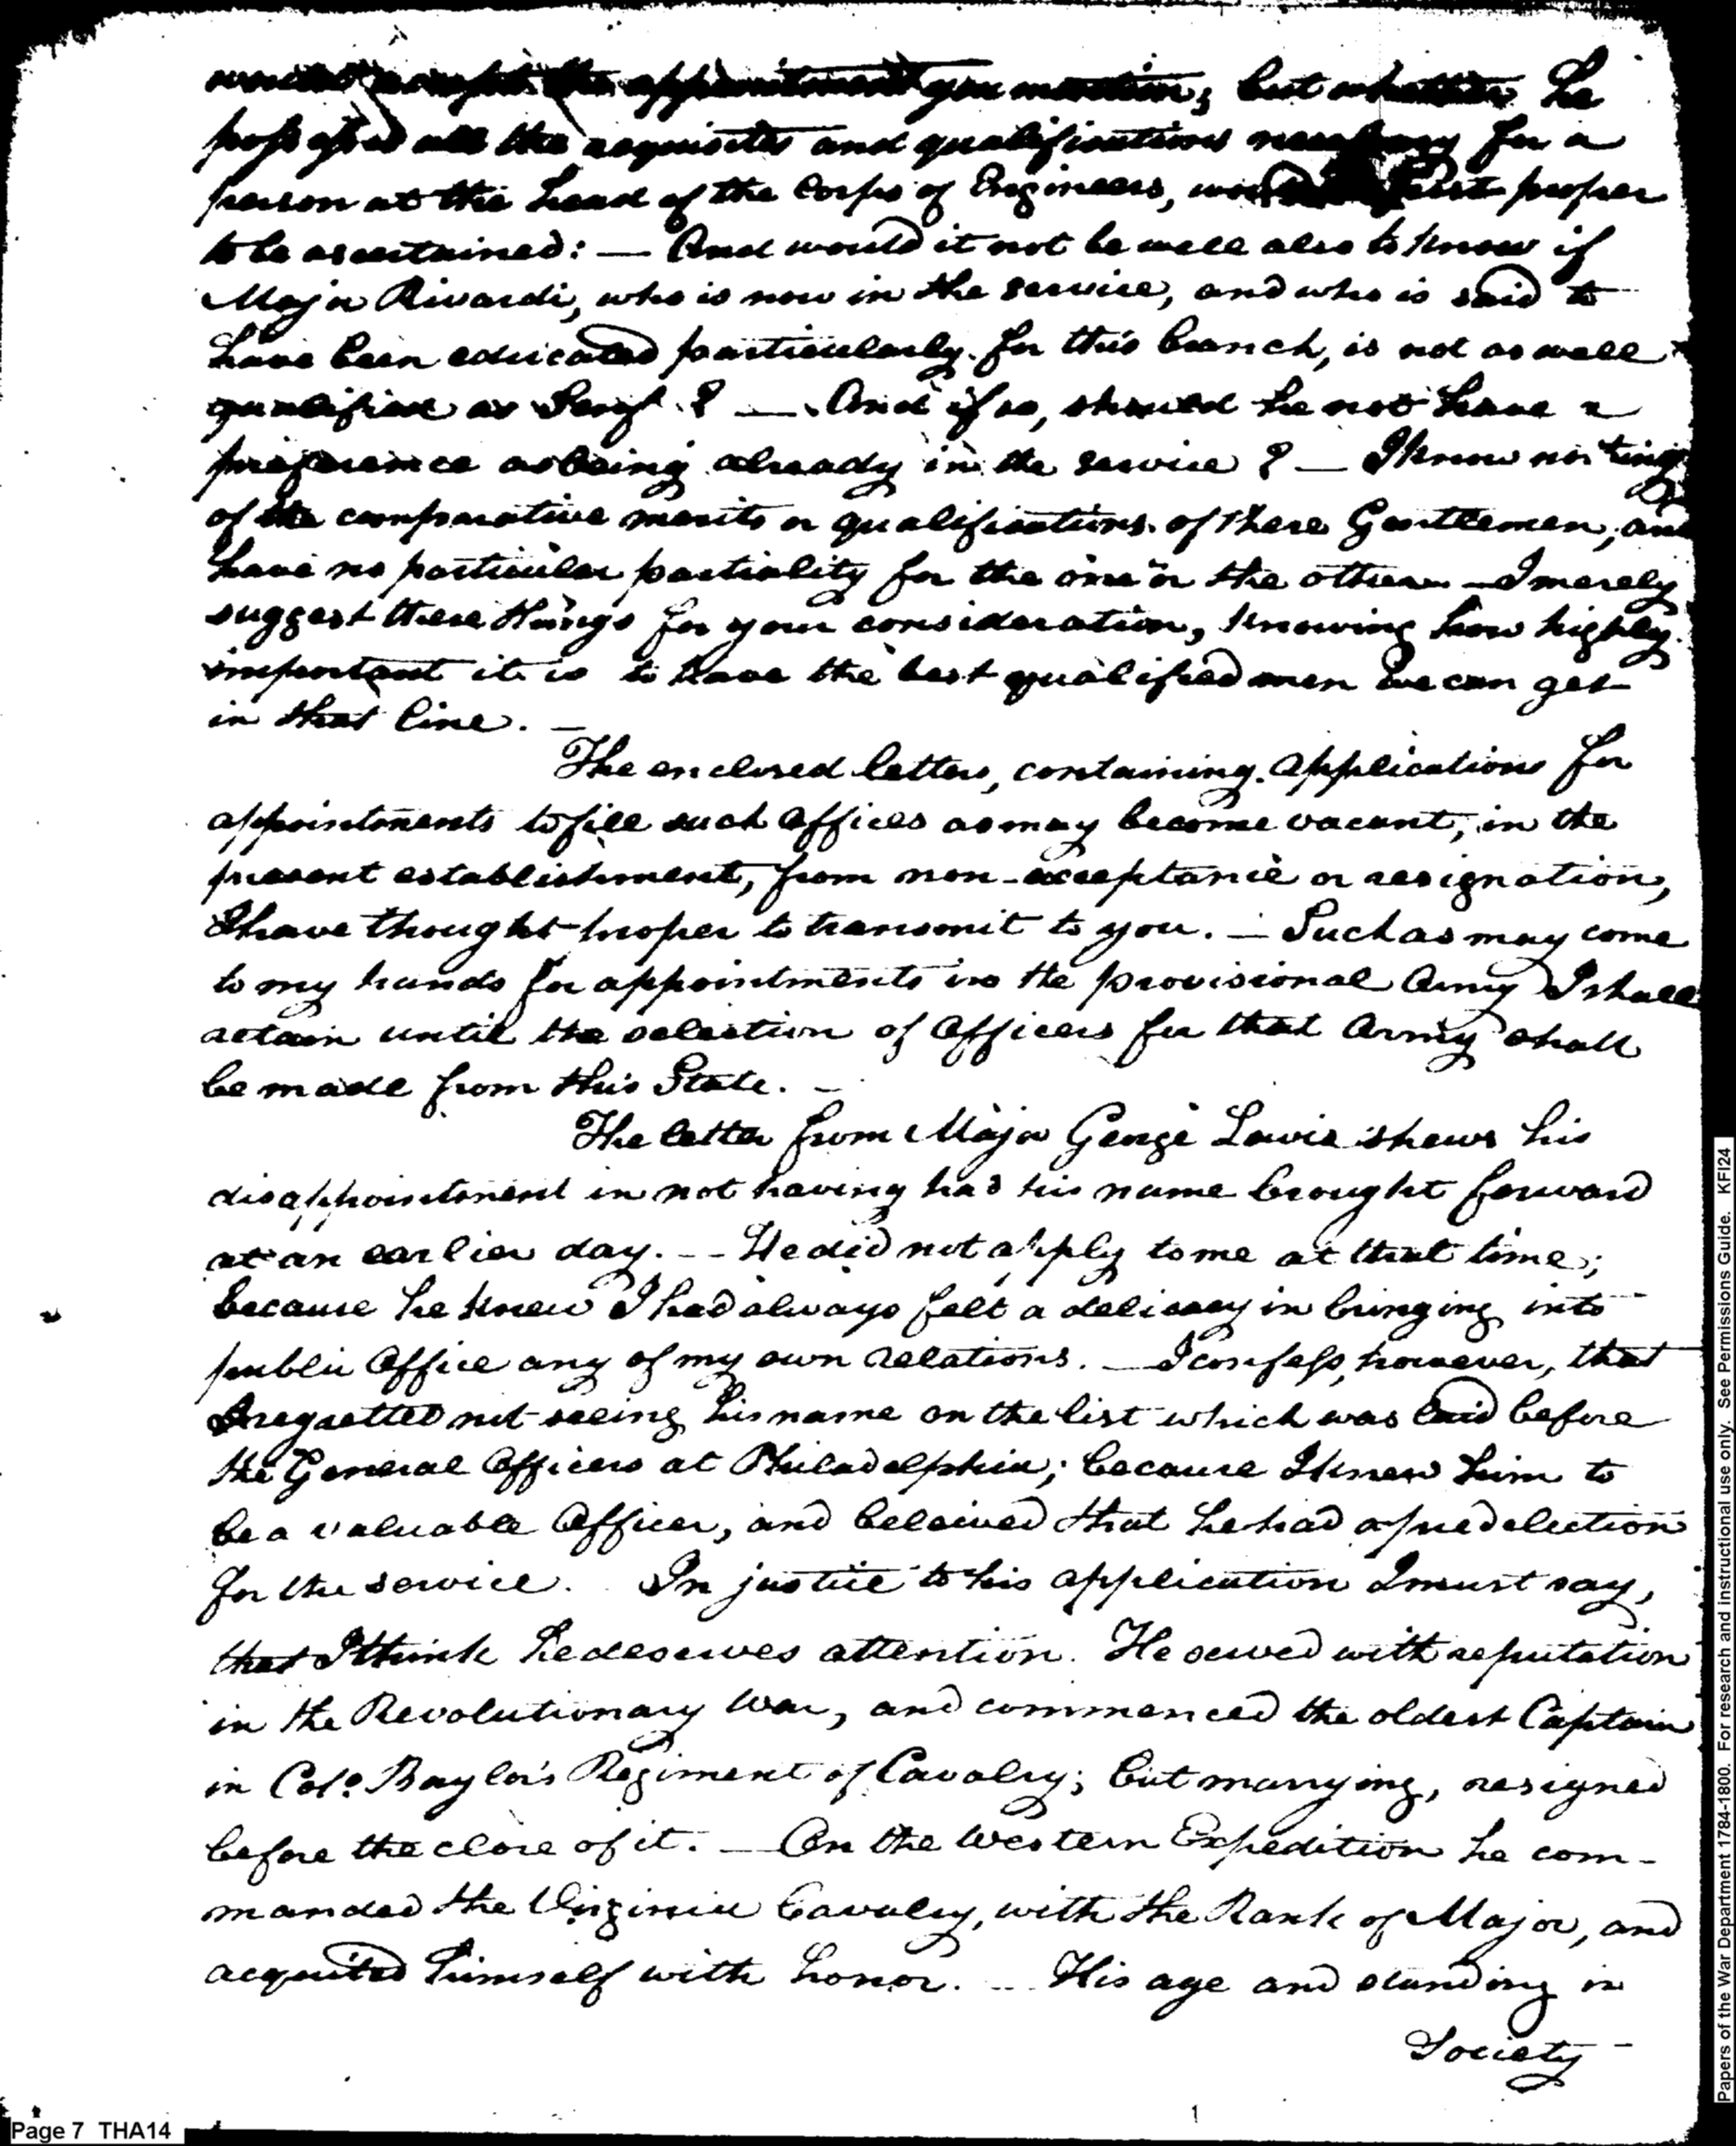 would accept the appointment you mention; but whether he
possessed all the requisites and qualifications necessary for a
person at the head of the Corps of Engineers, would first proper
to be ascertained: — And would it not be well also to know if
Major Rivardi, who is now in the service, and who is said to
have been educated particularly for this branch, is not as well
qualified as Senf? — And if so, should he not have a
preference as being already in the service? — I know nothing
of the comparative merits or qualifications of these Gentlemen, and
have no particular partiality for the one or the other — I merely
suggest these things for your consideration, knowing how highly
important it is to have the best qualified men we can get
in that line. —
The enclosed letters, containing applications for
appointments to fill such Offices as may become vacant, in the
present establishment, from non-acceptance or resignation,
I have thought proper to transmit to you. — Such as may come
to my hands for appointments in the provisional Army I shall
retain until the selection of Officers for that Army shall
be made from this State. —
The letter from Major George Lewis shews his
disappointment in not having had his name brought forward
at an earlier day. — He did not apply to me at that time;
because he knew I had always felt a delicacy in bringing into
public Office any of my own relations. — I confess, however, that
I regretted not seeing his name on the list which was laid before
the General Officers at Philadelphia; because I knew him to
be a valuable Officer, and beleived that he had a predelection
for the service. In justice to his application I must say,
that I think he deserves attention. He served with reputation
in the Revolutionary War, and commenced the oldest Captain
in Colo. Baylor's Regiment of Cavalry; but marrying, resigned
before the close of it. — On the Western Expedition he com-
manded the Virginia Cavalry, with the Rank of Major, and
acquited himself with honor. — His age and standing in
Society
Page 7 THA14
1
Papers of the War Department 1784-1800. For research and instructional use only. See Permissions Guide. KFI24